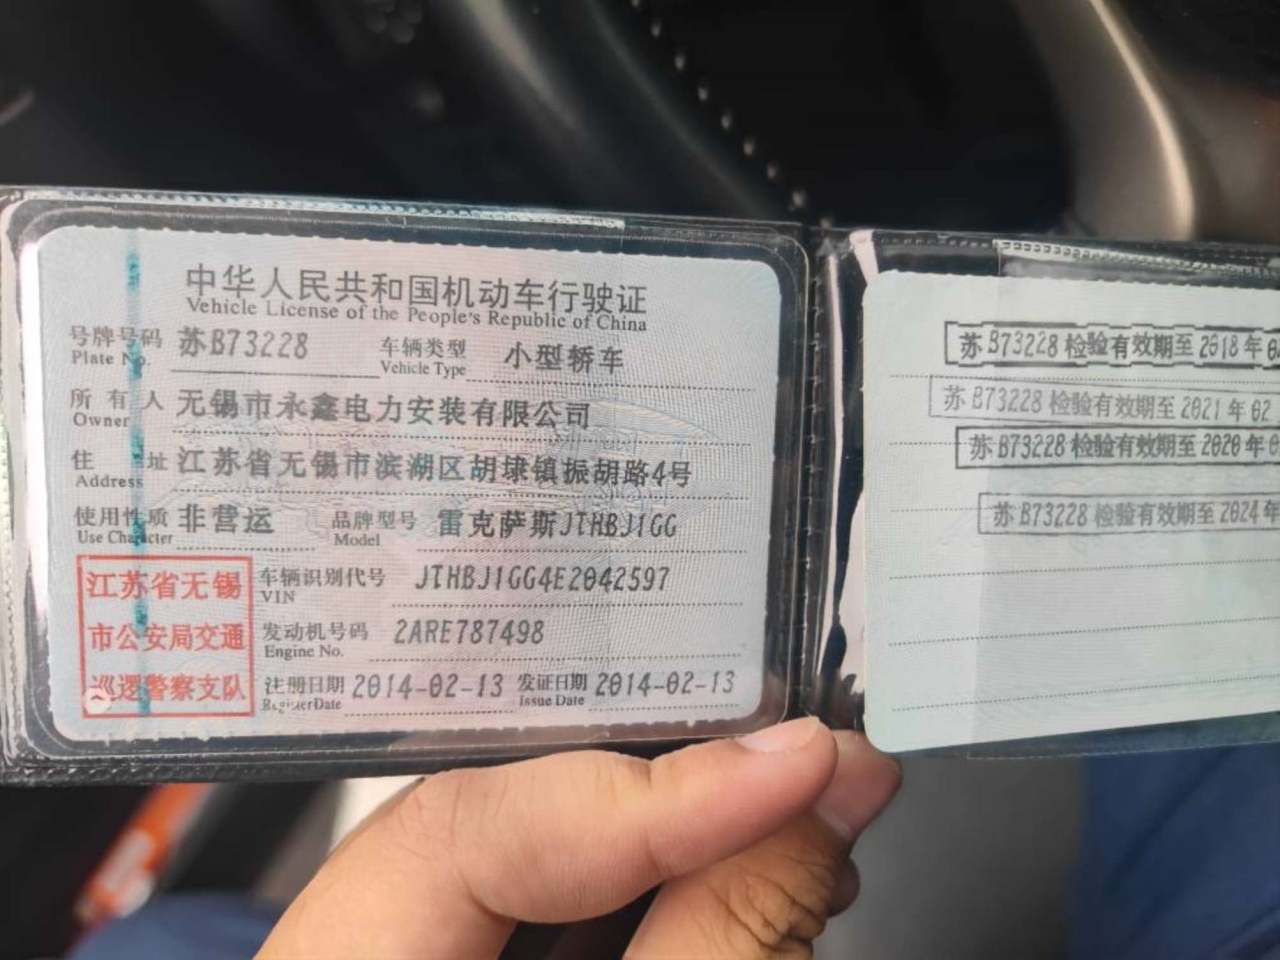 中华人民共和国机动车行驶证
Vehicle License of the People's Republic of China
号牌号码 苏B73228 车辆类型 小型轿车
Plate No. Vehicle Type
所有人 无锡市永鑫电力安装有限公司
Owner
住址 江苏省无锡市滨湖区胡埭镇振胡路4号
Address
使用性质 非营运 品牌型号 雷克萨斯JTHBJ1GG
Use Character Model
江苏省无锡
市公安局交通
巡逻警察支队
车辆识别代号 JTHBJ1GG4E2042597
VIN
发动机号码 2ARE787498
Engine No.
注册日期 2014-02-13 发证日期 2014-02-13
Register Date Issue Date
苏B73228检验有效期至2018年0
苏B73228检验有效期至2021年02
苏B73228检验有效期至2020年0
苏B73228检验有效期至2024年